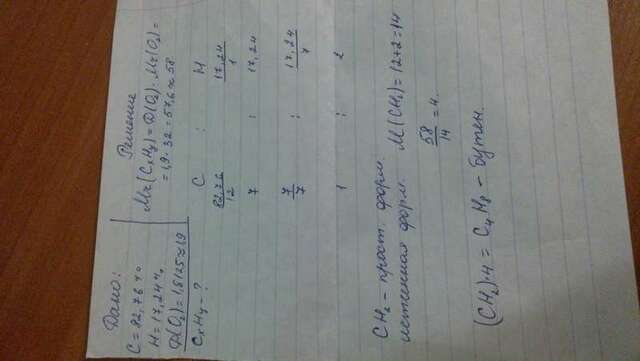 Дано:
C = 82,76 %
H = 17,24 %
D(O₂) = 1,8125 ≈ 1,9
CxHy - ?
Решение
Mr(CxHy) = D(O₂) · Mr(O₂) =
= 1,9 · 32 = 57,6 ≈ 58
C : H
82,76/12 17,24/1
7 : 17,24
7/7 : 17,24/7
1 : 2
CH₂ - прост. форм.
истенная форм. M(CH₂) = 12+2 = 14
58/14 = 4.
(CH₂)·4 = C₄H₈ - бутен.